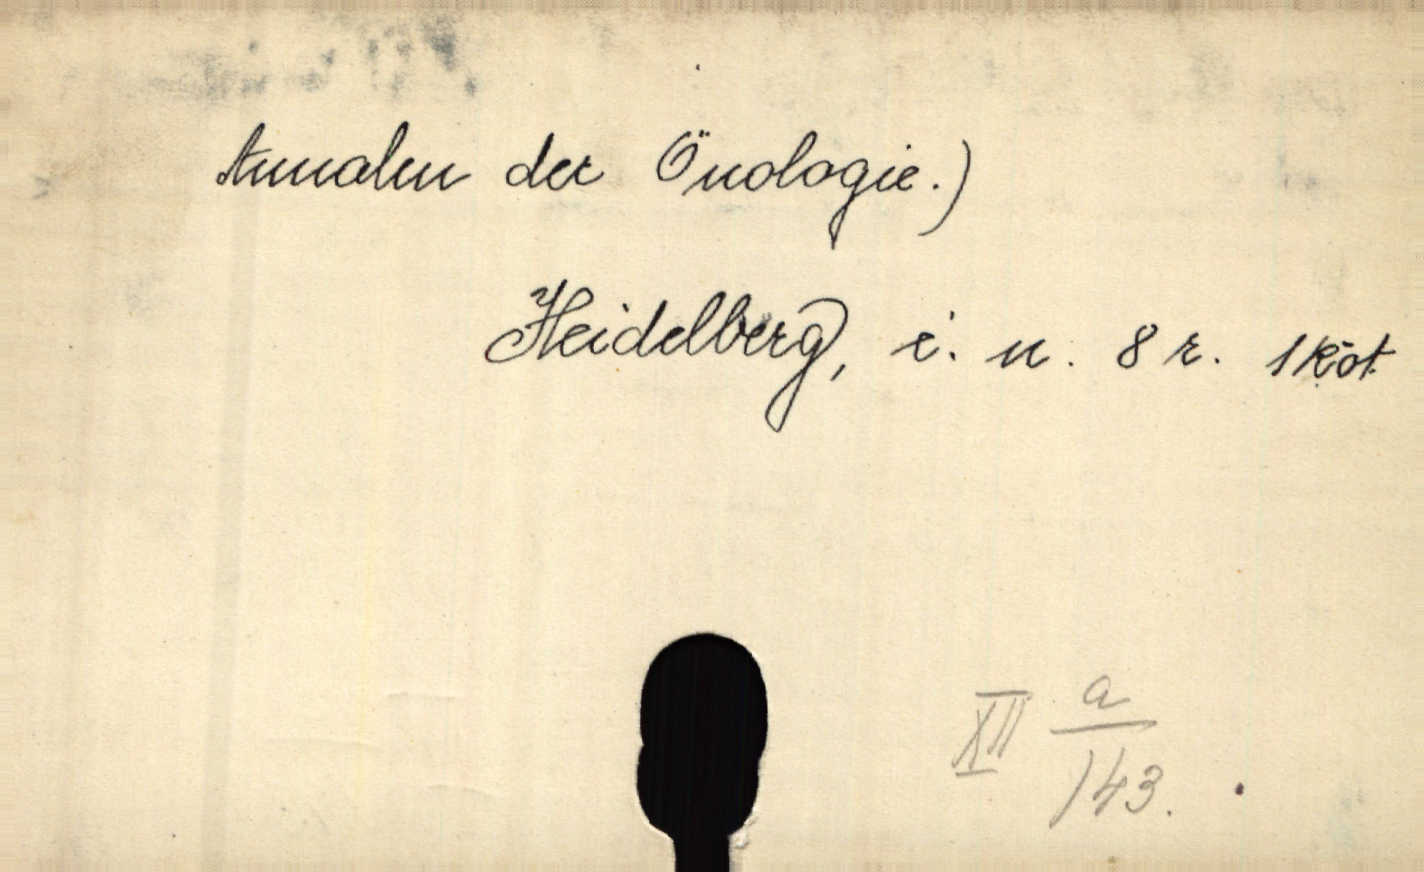 Annalen der Önologie.)
Heidelberg, é. n. 8 r. 1 köt.
XII a/143.